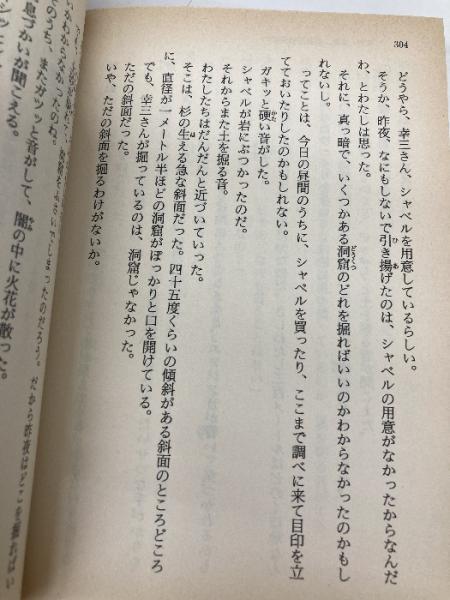 304
どうやら、幸三さん、シャベルを用意しているらしい。
そうか、昨夜、なにもしないで引き揚げたのは、シャベルの用意がなかったからなんだ
わ、とわたしは思った。
それに、真っ暗で、いくつかある洞窟のどれを掘ればいいのかわからなかったのかもし
れないし。
ってことは、今日の昼間のうちに、シャベルを買ったり、ここまで調べに来て目印を立
てておいたりしたのかもしれない。
ガキッと硬い音がした。
シャベルが岩にぶつかったのだ。
それからまた土を掘る音。
わたしたちはだんだんと近づいていった。
そこは、杉の生える急な斜面だった。四十五度くらいの傾斜がある斜面のところどころ
に、直径が一メートル半ほどの洞窟がぽっかりと口を開けている。
でも、幸三さんが掘っているのは、洞窟じゃなかった。
ただの斜面だった。
いや、ただの斜面を掘るわけがないか。
しまったのだろう。だから昨夜はどこを掘ればい
いかわからなかったのね。
そのうち、またガツッと音がして、闇の中に火花が散った。
息づかいが聞こえる。